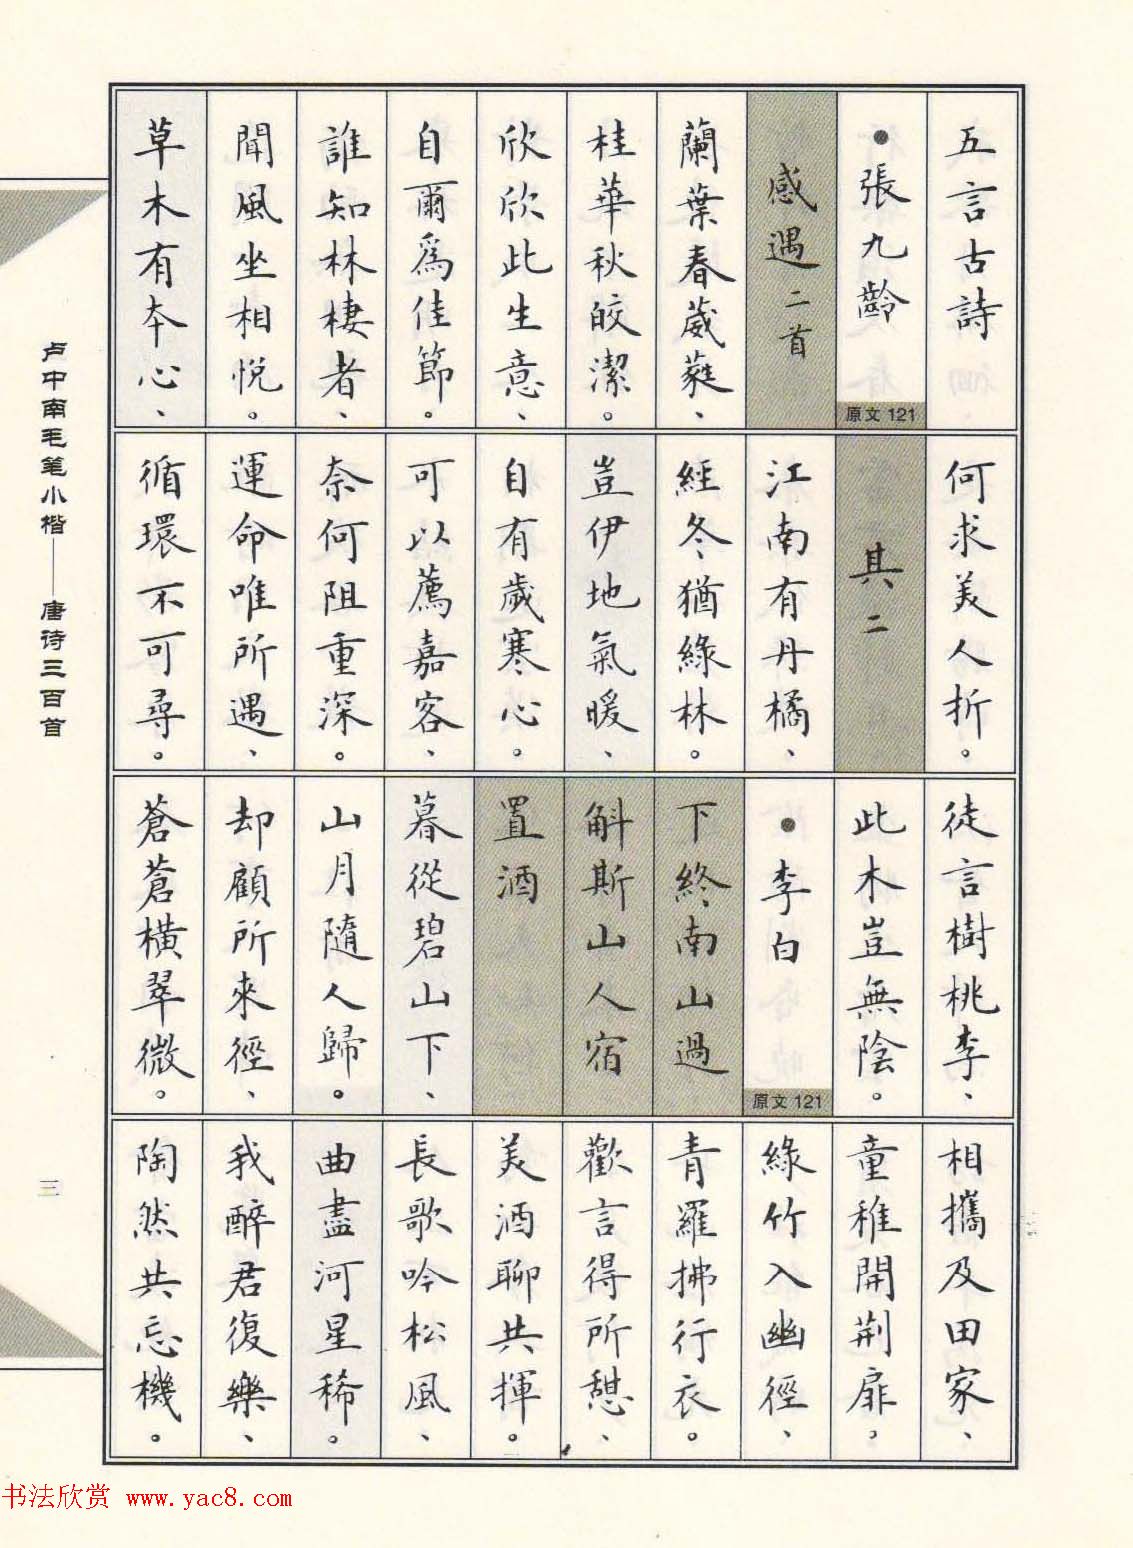 五言古詩
•張九齡
原文121
感遇二首
蘭葉春葳蕤、
桂華秋皎潔。
欣欣此生意、
自爾爲佳節。
誰知林棲者、
聞風坐相悅。
草木有本心、
何求美人折。
其二
江南有丹橘、
經冬猶綠林。
豈伊地氣暖、
自有歲寒心。
可以薦嘉客、
奈何阻重深。
運命唯所遇、
循環不可尋。
徒言樹桃李、
此木豈無陰。
•李白
原文121
下終南山過
斛斯山人宿
置酒
暮從碧山下、
山月隨人歸。
却顧所來徑、
蒼蒼橫翠微。
相攜及田家、
童稚開荆扉，
綠竹入幽徑、
青羅拂行衣。
歡言得所憩、
美酒聊共揮。
長歌吟松風、
曲盡河星稀。
我醉君復樂、
陶然共忘機。
卢中南毛笔小楷——唐诗三百首
三
书法欣赏 www.yac8.com